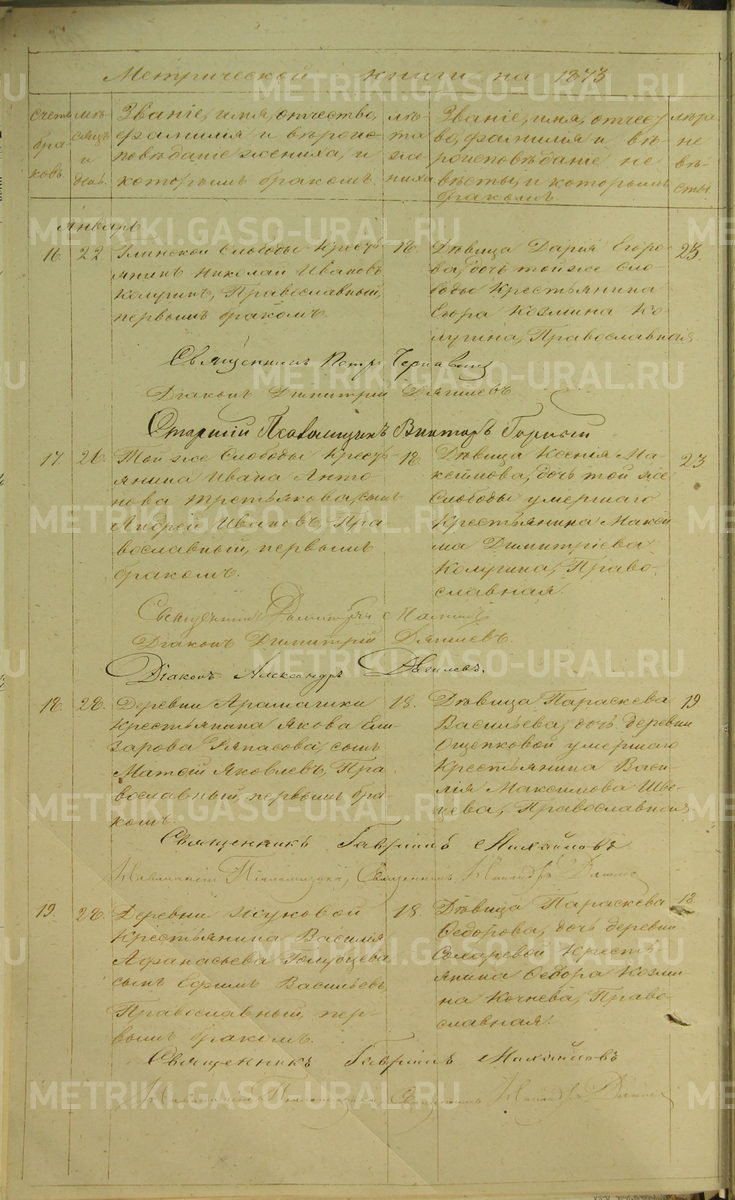 METRIKI.GASO-URAL.RU
Метрической книги на 1873
Счетъ браковъ.
Мѣсяцъ и день.
Званіе, имя, отчество,
фамилія и вѣроис-
повѣданіе жениха, и
которымъ бракомъ.
Лѣта жениха
Званіе, имя, отчест-
во, фамилія и вѣ-
роисповѣданіе не-
вѣсты, и которымъ
бракомъ
Лѣта невѣсты
Январь
16. 22
Глинской Слободы Кресть-
янинъ Николай Ивановъ
Калугинъ, Православный,
первымъ бракомъ.
18.
Дѣвица Дарія Егоро-
ва, дочь той же Сло-
боды Крестьянина
Егора Козмина Ка-
лугина, Православная.
23.
Священникъ Петръ
Діаконъ Димитрій Дягилевъ.
Старшій Псаломщикъ Викторъ
17. 26.
Той же Слободы Кресть-
янина Ивана Анто-
нова Третьякова, сынъ
Андрей Ивановъ, Пра-
вославный, первымъ
бракомъ.
18.
Дѣвица Ксенія Ма-
ксимова, дочь той же
Слободы умершаго
Крестьянина Макси-
ма Димитріева
Калугина, Право-
славная.
23
Священникъ
Діаконъ Димитрій Дягилевъ.
Діаконъ Александръ Дягилевъ.
18. 28.
Деревни Арамашки
Крестьянина Якова Ели-
зарова сынъ
Матѳей Яковлевъ, Пра-
вославный, первымъ бра-
комъ.
18.
Дѣвица Параскева
Васильева, дочь деревни
Ощепковой умершаго
Крестьянина Васи-
лія Максимова Шве-
цова, Православная.
19
Священникъ Гавріилъ Михайловъ
Священникъ
19. 28.
Деревни Жуковой
Крестьянина Василія
Афанасьева
сынъ Ефимъ Васильевъ,
Православный, пер-
вымъ бракомъ.
18.
Дѣвица Параскева
Ѳедорова, дочь деревни
Кресть-
янина Ѳедора Козми-
на Кочнева, Право-
славная.
18.
Священникъ Гавріилъ Михайловъ
Священникъ